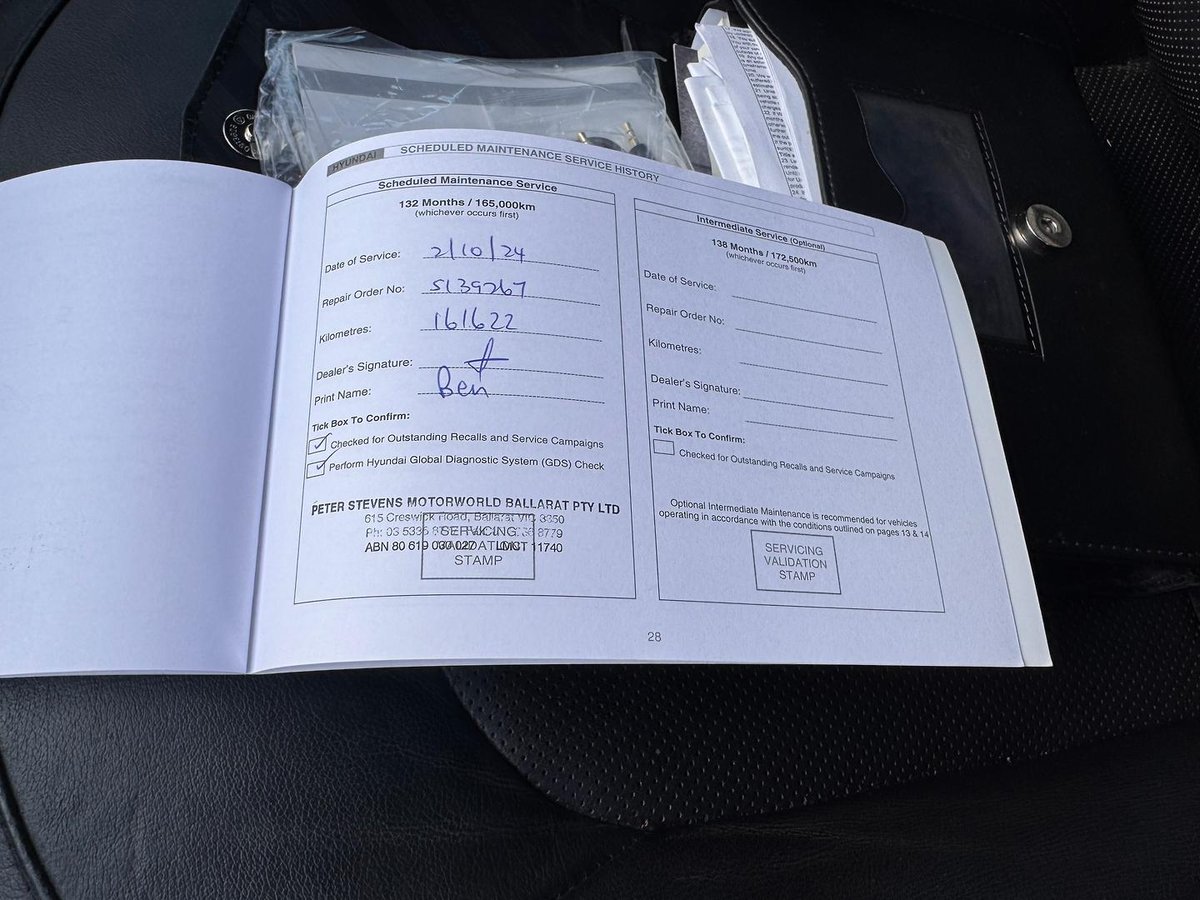 HYUNDAI SCHEDULED MAINTENANCE SERVICE HISTORY
Scheduled Maintenance Service
132 Months / 165,000km
(whichever occurs first)
Date of Service: 2/10/24
Repair Order No: S139267
Kilometres: 161622
Dealer's Signature:
Print Name: Ben
Tick Box To Confirm:
Checked for Outstanding Recalls and Service Campaigns
Perform Hyundai Global Diagnostic System (GDS) Check
PETER STEVENS MOTORWORLD BALLARAT PTY LTD
615 Creswick Road, Ballarat VIC 3350
Ph: 03 5335 8779
ABN 80 619 030 027 LMCT 11740
SERVICING
STAMP
Intermediate Service (Optional)
138 Months / 172,500km
(whichever occurs first)
Date of Service:
Repair Order No:
Kilometres:
Dealer's Signature:
Print Name:
Tick Box To Confirm:
Checked for Outstanding Recalls and Service Campaigns
Optional Intermediate Maintenance is recommended for vehicles
operating in accordance with the conditions outlined on pages 13 & 14
SERVICING
VALIDATION
STAMP
28